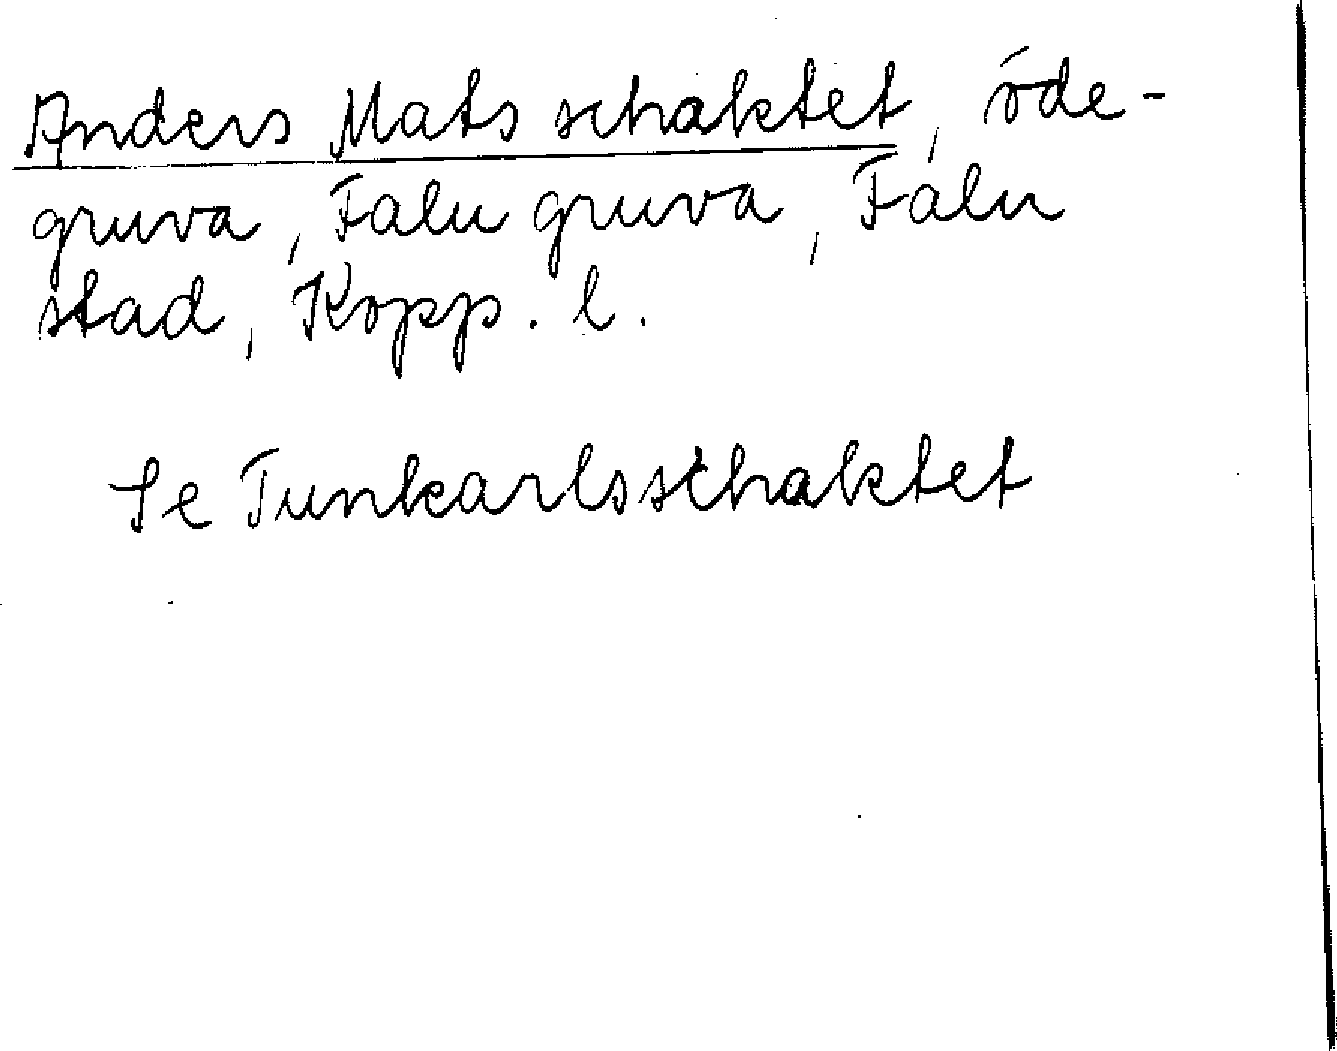 Anders Mats schaktet, öde-
gruva, Falu gruva, Falu
stad, Kopp. l.
Se Tunkarlsschaktet